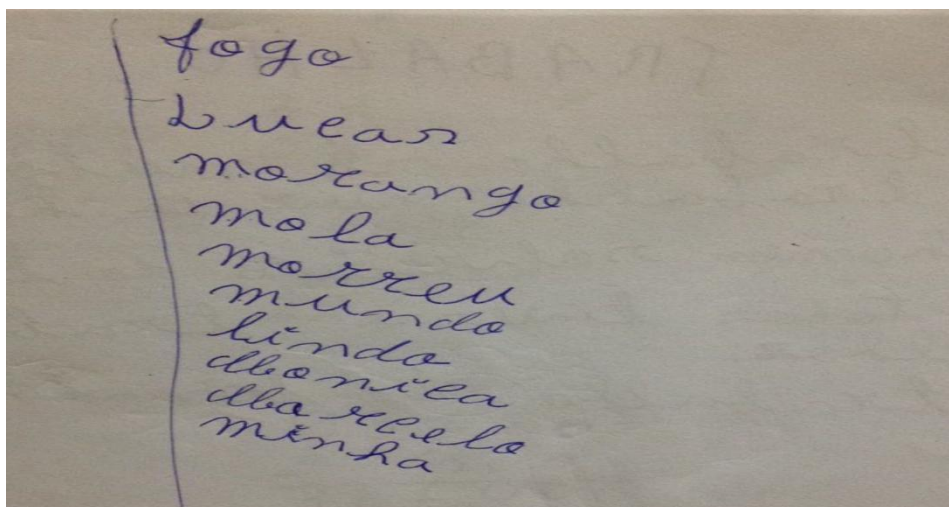 fogo
Lucas
morango
mola
morreu
mundo
lindo
Monica
Marcelo
minha